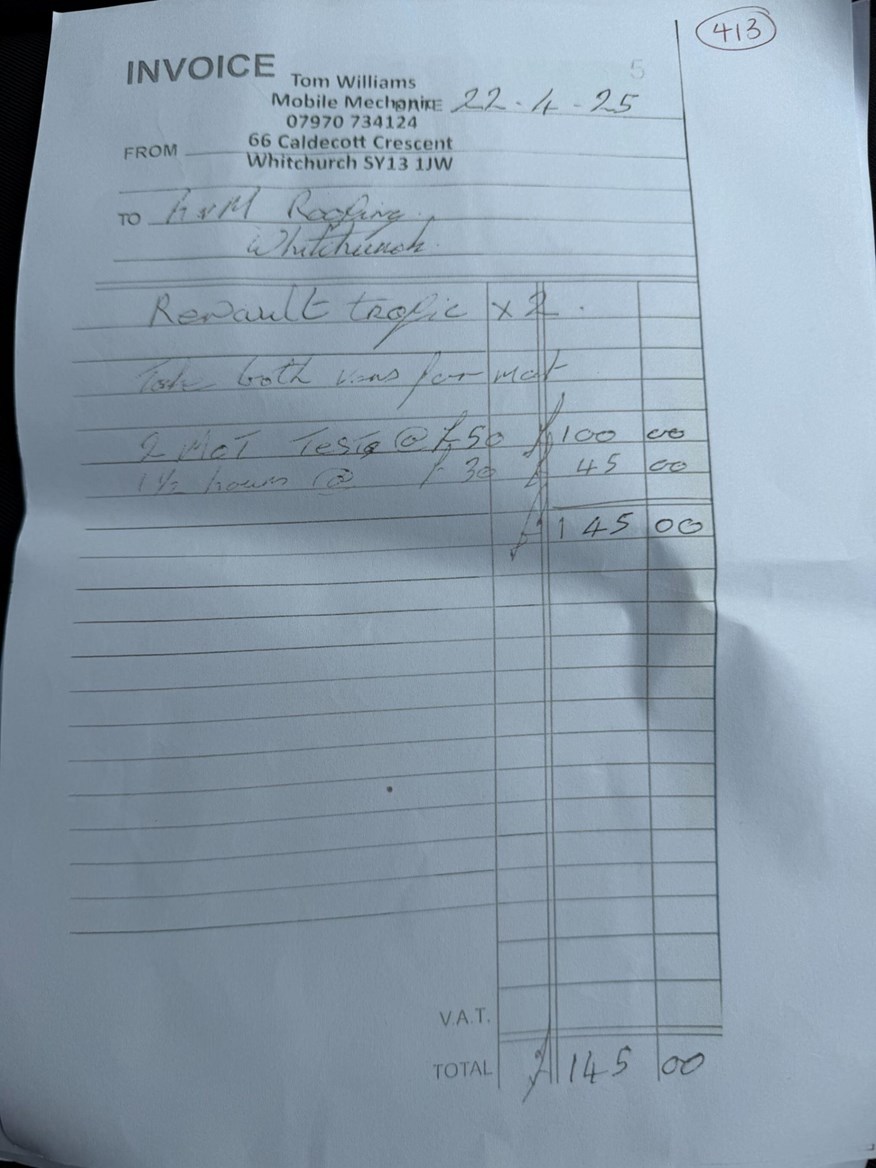 413
INVOICE
5
Tom Williams
Mobile Mechanic
22-4-25
07970 734124
66 Caldecott Crescent
FROM
Whitchurch SY13 1JW
TO
Roofing
Whitchurch.
Renault trafic x 2.
Take both vans for mot
2 MOT Tests @ £50 £100 00
1½ hours @ £30 £ 45 00
£145 00
V.A.T.
TOTAL £145 00